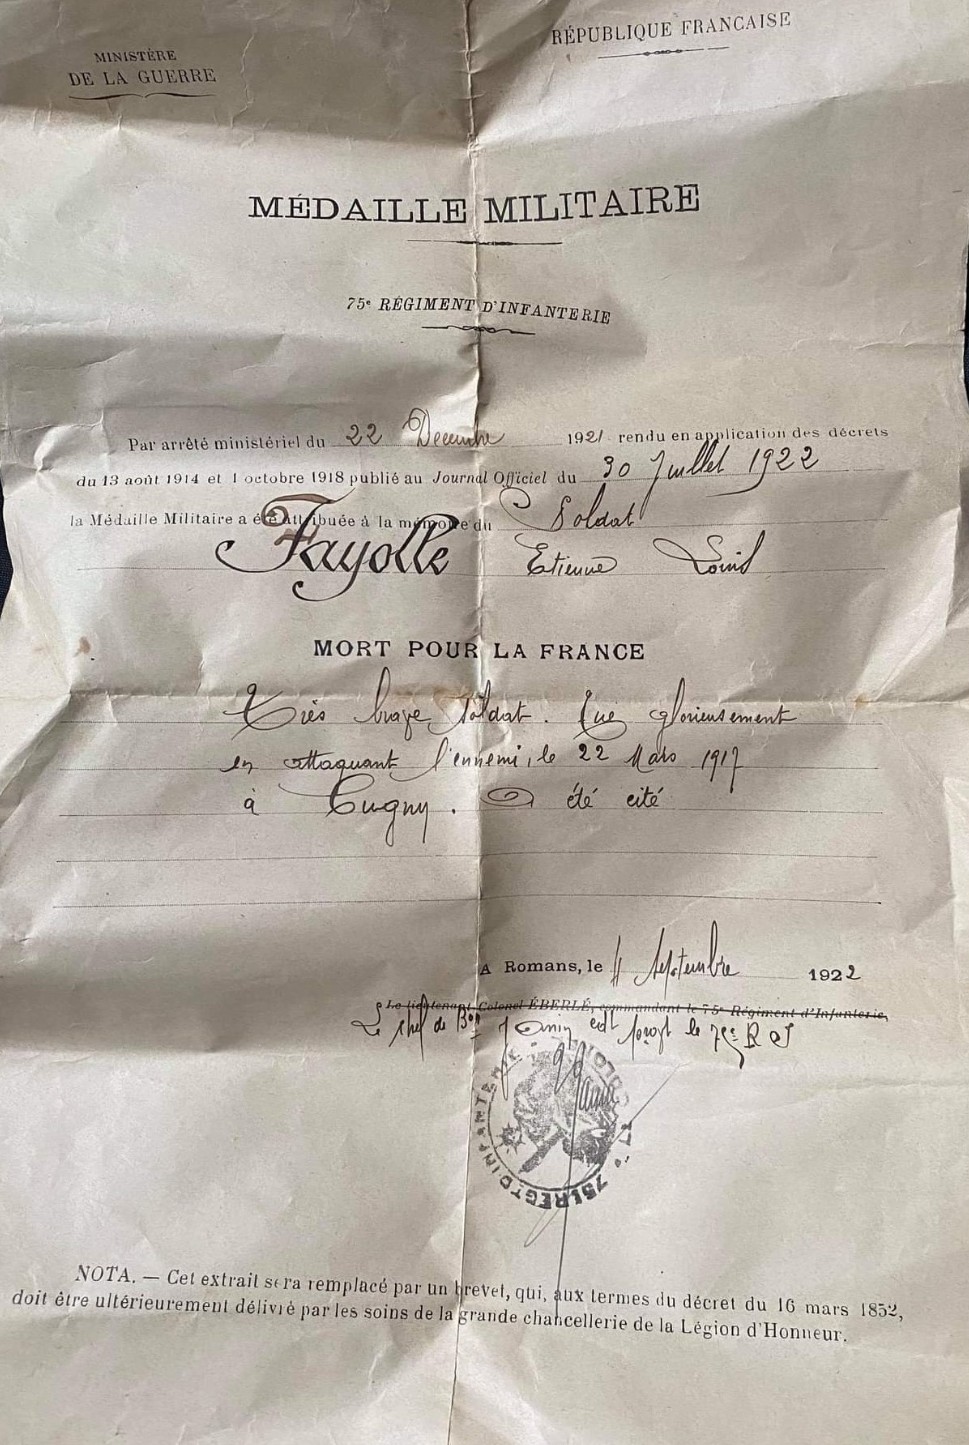 MINISTÈRE
DE LA GUERRE
RÉPUBLIQUE FRANCAISE
MÉDAILLE MILITAIRE
75e RÉGIMENT D'INFANTERIE
Par arrêté ministériel du 22 Decembre 1921 rendu en application des décrets
du 13 août 1914 et 1 octobre 1918 publié au Journal Officiel du 30 Juillet 1922
la Médaille Militaire a été attribuée à la mémoire du Soldat
Fayolle Etienne Louis
MORT POUR LA FRANCE
Très brave soldat. Tué glorieusement
en attaquant l'ennemi, le 22 Mars 1917
à Cugny. A été cité
A Romans, le 11 Septembre 1922
Le lieutenant-Colonel ÉBERLÉ, commandant le 75e Régiment d'Infanterie,
Le chef de Bon Comdt provt le 75e R I
75E REGT D'INFANTERIE
NOTA. — Cet extrait sera remplacé par un brevet, qui, aux termes du décret du 16 mars 1852,
doit être ultérieurement délivré par les soins de la grande chancellerie de la Légion d'Honneur.